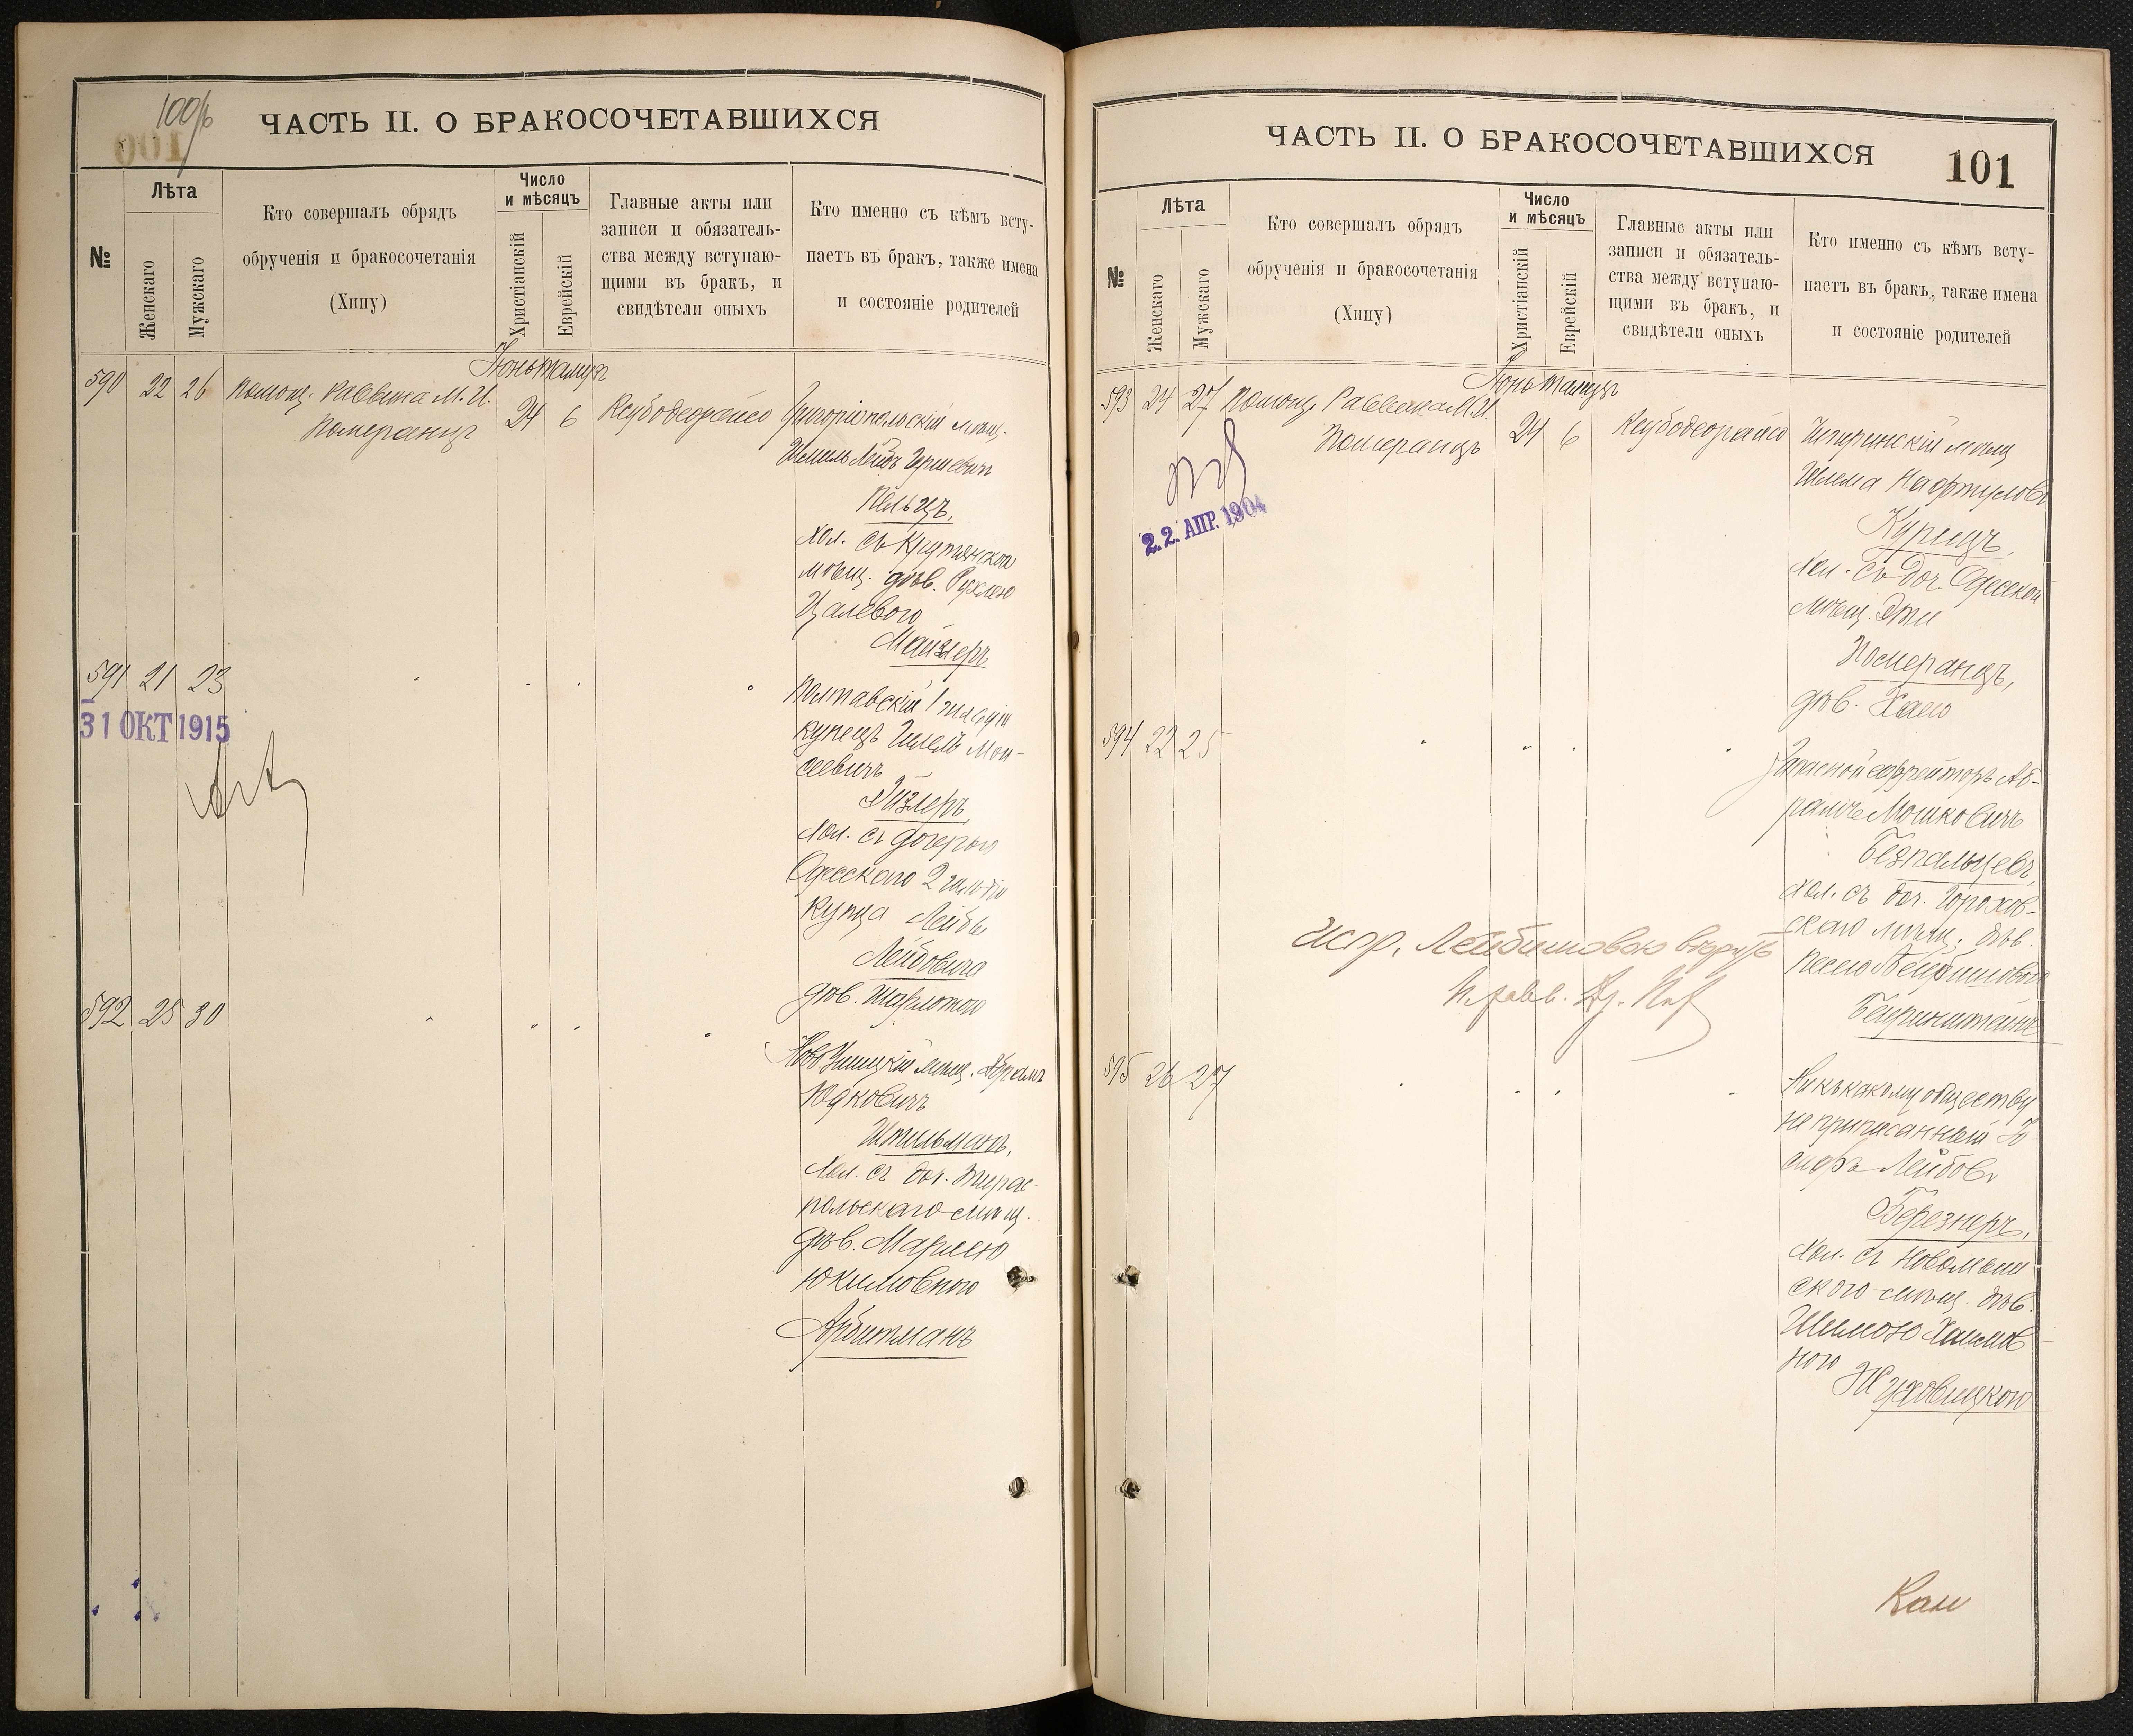 100/б
ЧАСТЬ II. О БРАКОСОЧЕТАВШИХСЯ
№
Лѣта
Женскаго
Мужскаго
Кто совершалъ обрядъ
обрученія и бракосочетанія
(Хипу)
Число
и мѣсяцъ
Христіанскій
Еврейскій
Главные акты или
записи и обязатель-
ства между вступаю-
щими въ бракъ, и
свидѣтели оныхъ
Кто именно съ кѣмъ всту-
паетъ въ бракъ, также имена
и состояніе родителей
Іюнь Тамузъ
590 22 26 Помощ. Раввина М. И.
Померанцъ
24 6
Ксубодеорайсо
Григоріопольскій мѣщ.
Шмиль Лейбъ Гершевичъ
Пельцъ,
хол. съ Крутянскою
мѣщ. дѣв. Рухлею
Цалевого
Майзлеръ
591 21 23
31 ОКТ 1915
Полтавскій 1 гильдіи
купецъ Гилель Мои-
сеевичъ
Дизлеръ,
хол. съ дочерью
Одесскаго 2 гильдіи
купца Лейбы
Лейбовича
дѣв. Шарлотою
592 25 30
Ново Ушицкій мѣщ. Абрамъ
Юдковичъ
Штильманъ,
хол. съ доч. Тирас-
польскаго мѣщ.
дѣв. Маріею
Юкимовною
Арбитманъ
ЧАСТЬ II. О БРАКОСОЧЕТАВШИХСЯ
101
№
Лѣта
Женскаго
Мужскаго
Кто совершалъ обрядъ
обрученія и бракосочетанія
(Хипу)
Число
и мѣсяцъ
Христіанскій
Еврейскій
Главные акты или
записи и обязатель-
ства между вступаю-
щими въ бракъ, и
свидѣтели оныхъ
Кто именно съ кѣмъ всту-
паетъ въ бракъ, также имена
и состояніе родителей
Іюнь Тамузъ
593 24 27 Помощ. Раввина М. И.
Померанцъ
24 6
Ксубодеорайсо
22. АПР. 1904
мѣщ
Шлема Нафтулов
Курицъ,
хол. съ доч. Одесской
мѣщ. Эти
Померанцъ,
дѣв. Хаею
594 22 25
Запасной ефрейторъ Аб-
рамъ Мошковичъ
Безпальцевъ,
хол. съ доч. Горохов-
скаго мѣщ. дѣв.
Песею Лейбишовою
Бейринштейнъ
испр. Лейбишовою вѣрить
П. равв.
595 26 27
Ни къ какому обществу
не приписанный Іо
сифъ Лейбов
Березнеръ,
хол. съ
ского мѣщ. дѣв.
Шимою Хаимов
ною
Жуховицкою